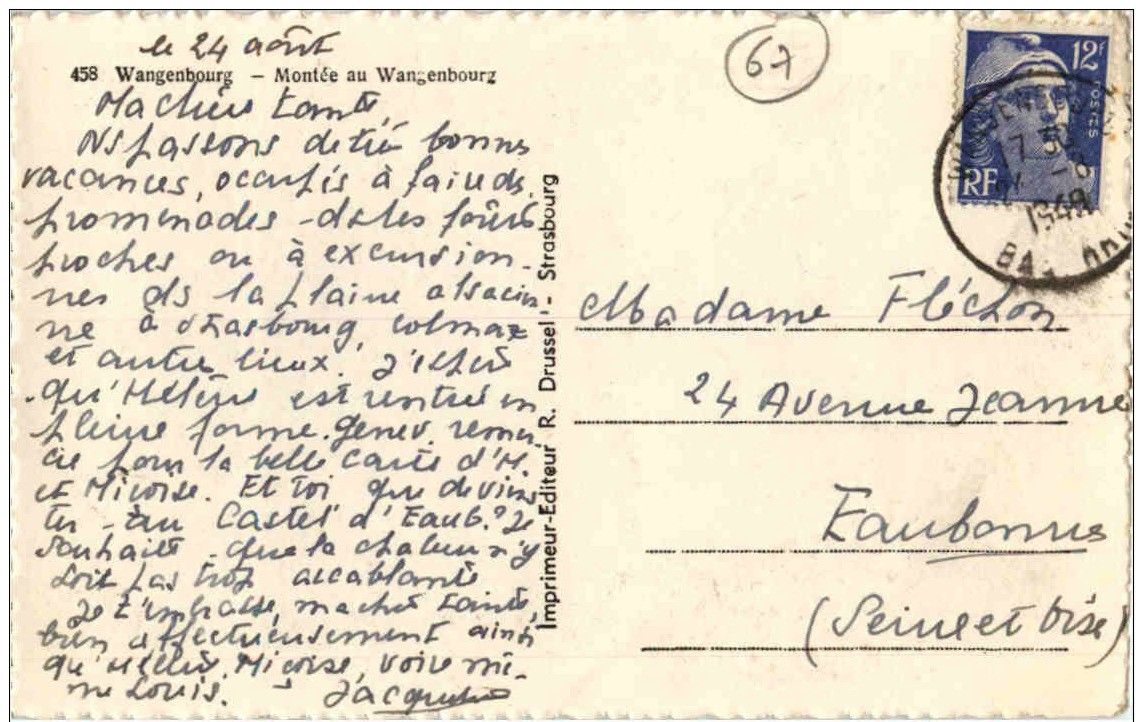 le 24 août
458 Wangenbourg — Montée au Wangenbourg
Ma chère tante,
Ns passons de très bonnes
vacances, occupés à faire ds
promenades ds les forêts
proches ou à excursion-
ner ds la plaine alsacien-
ne à Strasbourg, Colmar
et autres lieux. J'espère
qu'Hélène est rentrée en
pleine forme. Genev. remer-
cie pour la belle carte d'H.
et Miçoise. Et toi que deviens
tu au Castel d'Eaub.? Je
souhaite que la chaleur n'y
soit pas trop accablante
Je t'embrasse, ma chère tante,
bien affectueusement ainsi
qu'Hélène, Miçoise, voire mê-
me Louis. Jacqueline
Imprimeur-Editeur R. Drussel - Strasbourg
67
12F
POSTES
RF
17 30
24 -8
1949
BAS-RHIN
Madame Fléchon
24 Avenue Jeanne
Eaubonne
(Seine et Oise)